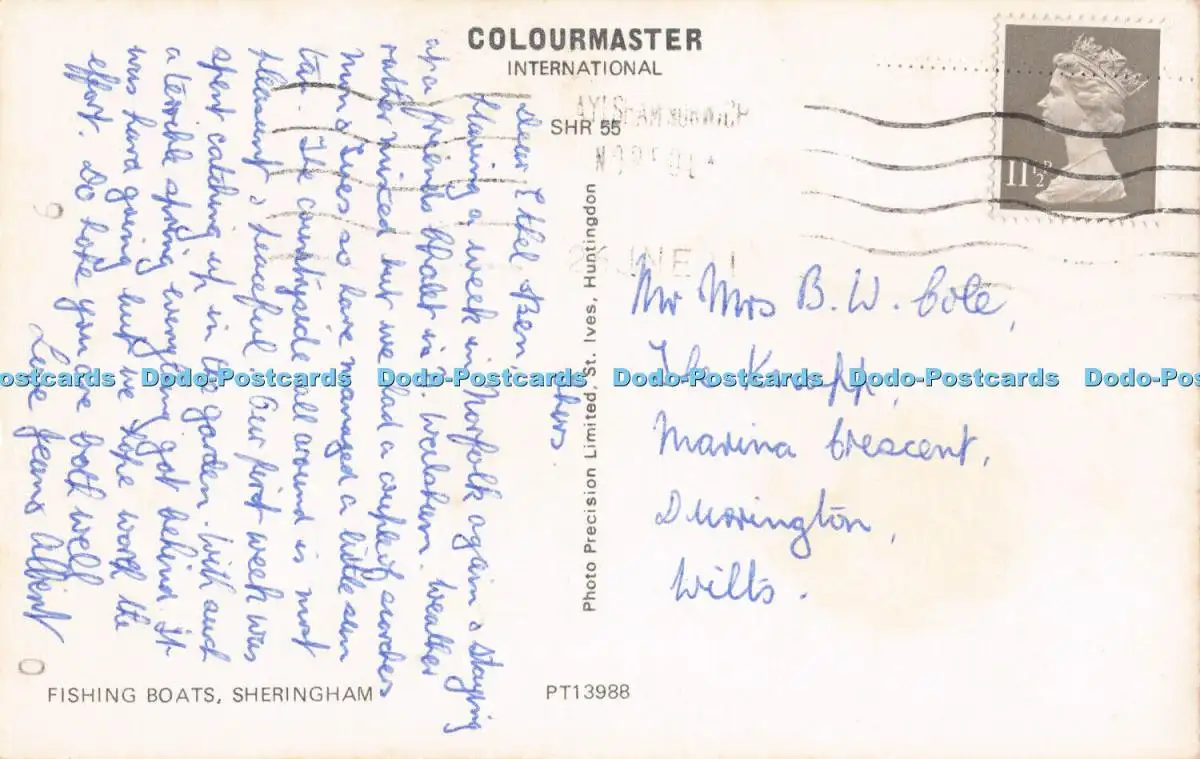 COLOURMASTER
INTERNATIONAL
AYLSHAM NORWICH
SHR 55
NORFOLK
JNE
11½P
Dear Ethel & Ben
Having a week in Norfolk again & staying
at a friends chalet in Walsham. Weather
rather mixed but we had a couple of scorchers
Mon & Tues so have managed a little sun
tan. The countryside all around is most
pleasant & peaceful. Our first week was
spent catching up in the garden. With such
a terrible spring everything got behind. It
was hard going but we hope worth the
effort. Do hope you are both well
Love Jean & Albert
Mr Mrs B. W. Cole,
The
Marina Crescent,
Durrington,
Wilts.
Photo Precision Limited, St. Ives, Huntingdon
FISHING BOATS, SHERINGHAM
PT13988
Dodo-Postcards Dodo-Postcards Dodo-Postcards Dodo-Postcards Dodo-Postcards Dodo-Postcards